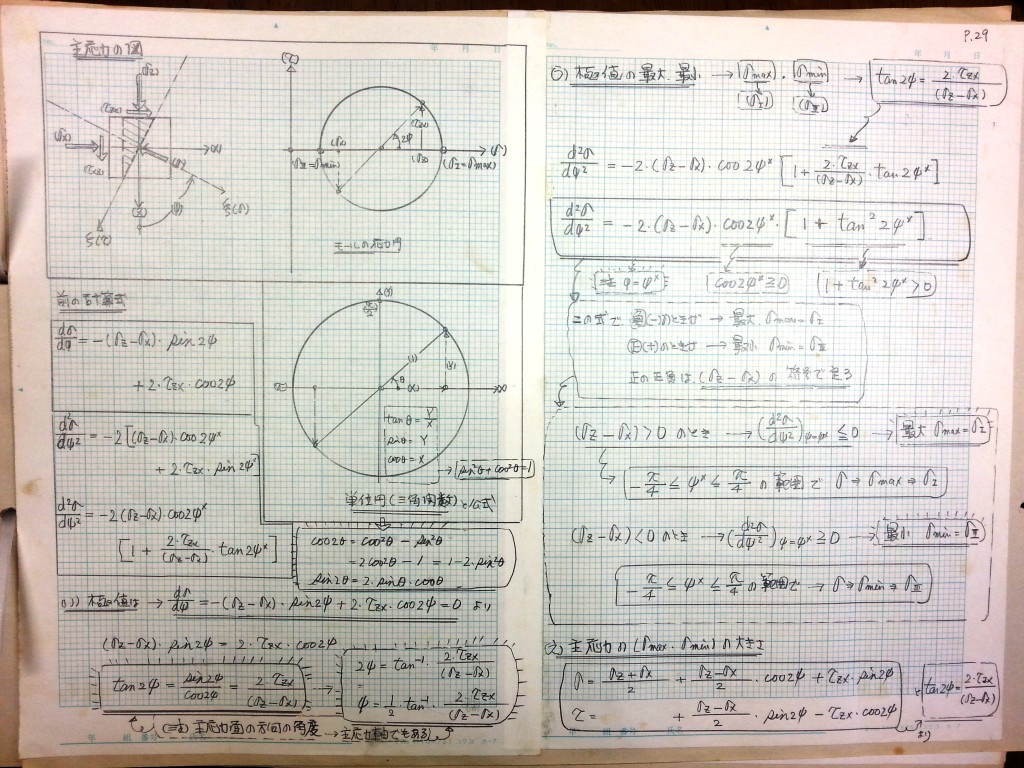 主応力の図
(σz)
(τzx)
(σx)
(τxz)
(x)
(σ)
(z)
(ψ)
ξ(σ)
ξ(τ)
(τ)
(τzx)
2ψ
(σx)
(σz)
(σ)
(σⅡ=σmin)
(σI=σmax)
モールの応力円
前の計算式
dσ/dψ = -(σz-σx)・sin2ψ
+ 2・τzx・cos2ψ
d²σ/dψ² = -2[(σz-σx)・cos2ψ*
+ 2・τzx・sin2ψ*]
d²σ/dψ² = -2(σz-σx)・cos2ψ*
[1 + 2・τzx/(σz-σx)・tan2ψ*]
(Y)
(1)
(Y)
θ
(X)
tanθ = Y/X
sinθ = Y
cosθ = X
→ sin²θ+cos²θ=1
単位円(三角関数)と公式
cos2θ = cos²θ - sin²θ
= 2cos²θ - 1 = 1-2・sin²θ
sin2θ = 2・sinθ・cosθ
1)) 極値は → dσ/dψ = -(σz-σx)・sin2ψ + 2・τzx・cos2ψ = 0 より
(σz-σx)・sin2ψ = 2・τzx・cos2ψ
tan2ψ = sin2ψ/cos2ψ = 2・τzx/(σz-σx) →
2ψ = tan⁻¹・2・τzx/(σz-σx)
ψ = 1/2・tan⁻¹・2・τzx/(σz-σx)
主応力面の方向の角度 → 主応力軸でもある)
年 組 番号
P.29
年 月 日
極値の最大、最小 → (σmax)・(σmin) → tan2ψ = 2・τzx/(σz-σx)
(σI) (σⅡ)
d²σ/dψ² = -2・(σz-σx)・cos2ψ* [1 + 2・τzx/(σz-σx)・tan2ψ*]
d²σ/dψ² = -2・(σz-σx)・cos2ψ*・[1 + tan²2ψ*]
ψ=ψ*
cos2ψ*≧0
1+tan²2ψ*>0
この式で 負(-)のときは → 最大 σmax=σI
正(+)のときは → 最小 σmin=σⅡ
正の正負は (σz-σx) の 符号で定る
(σz-σx)>0 のとき → (d²σ/dψ²)ψ=ψ* ≦0 → 最大 σmax=σI
-π/4 ≦ ψ* ≦ π/4 の範囲で σ⇒σmax⇒σI
(σz-σx)<0 のとき → (d²σ/dψ²)ψ=ψ* ≧0 → 最小 σmin=σⅡ
-π/4 ≦ ψ* ≦ π/4 の範囲で → σ⇒σmin⇒σⅡ
2) 主応力の(σmax・σmin)の大きさ
σ = (σz+σx)/2 + (σz-σx)/2・cos2ψ + τzx・sin2ψ
τ = + (σz-σx)/2・sin2ψ - τzx・cos2ψ
tan2ψ = 2・τzx/(σz-σx)
より